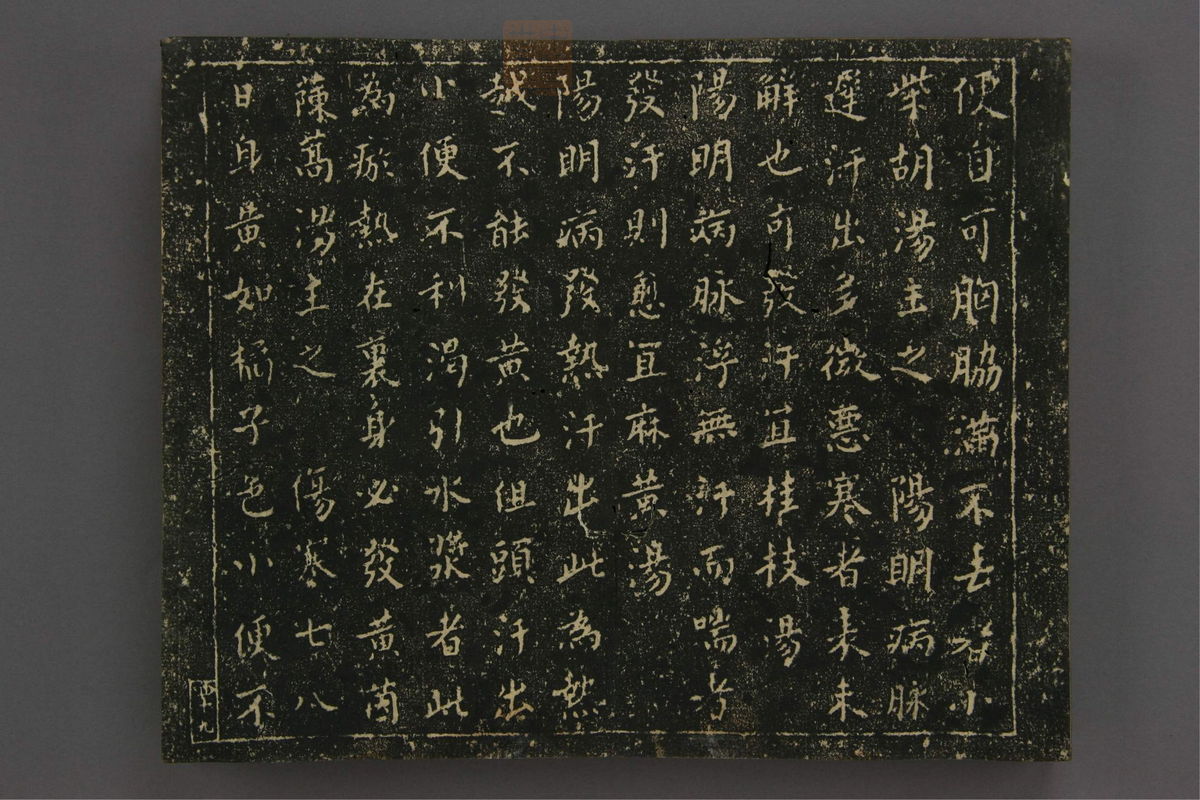 便自可胸脇滿不去者小
柴胡湯主之　陽明病脉
遲汗出多微惡寒者表未
解也可發汗宜桂枝湯
陽明病脉浮無汗而喘者
發汗則愈宜麻黃湯
陽明病發熱汗出此為熱
越不能發黃也但頭汗出
小便不利渴引水漿者此
為瘀熱在裏身必發黃茵
蔯蒿湯主之　傷寒七八
日身黃如橘子色小便不